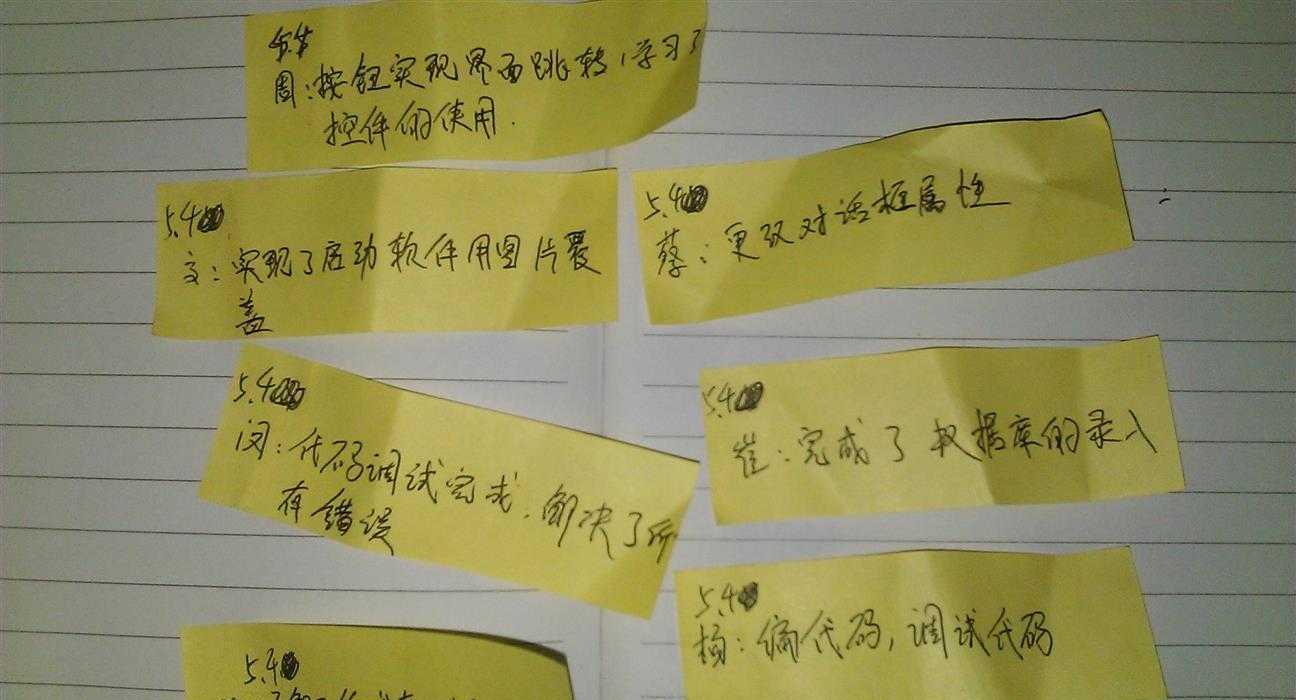 周:按钮实现界面跳转,学习了
控件的使用.
5.4
文:实现了启动软件用图片覆
盖
5.4
蔡:更改对话框属性
5.4
闵:代码调试完成.解决了所
有错误
5.4
崔:完成了数据库的录入
5.4
杨:编代码,调试代码
5.4